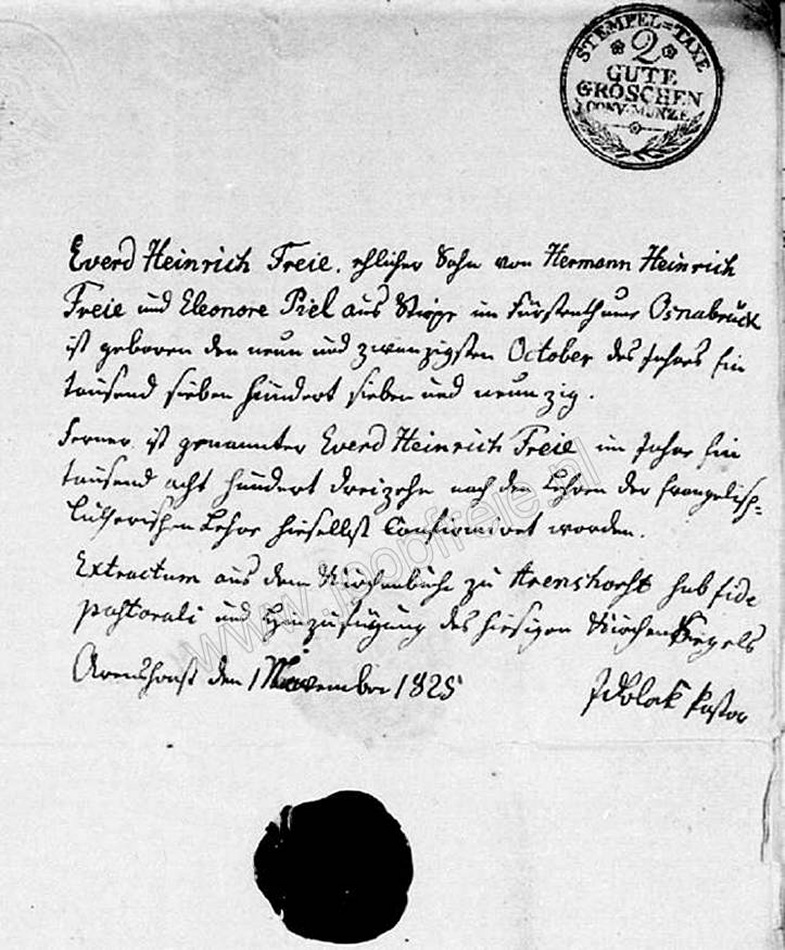 STEMPEL=TAXE
2
GUTE
GROSCHEN
CONV. MUNZE
Everd Heinrich Freie, ehlicher Sohn von Hermann Heinrich
Freie und Eleonore Piel aus Stirpe im Fürstenthume Osnabrück
ist geboren den neun und zwanzigsten October des Jahres Ein
tausend sieben hundert sieben und neunzig.
Ferner ist genannter Everd Heinrich Freie im Jahre Ein
tausend acht hundert dreizehn nach den Lehren der Evangelisch=
Lutherischen Lehre hieselbst Confirmiret worden.
Extractum aus dem Kirchenbuche zu Arenshorst sub fide
pastorali und Hinzufügung des hiesigen Kirchen Siegels
Arenshorst den 1 November 1825
Pastor
www.jpopfreie.nl